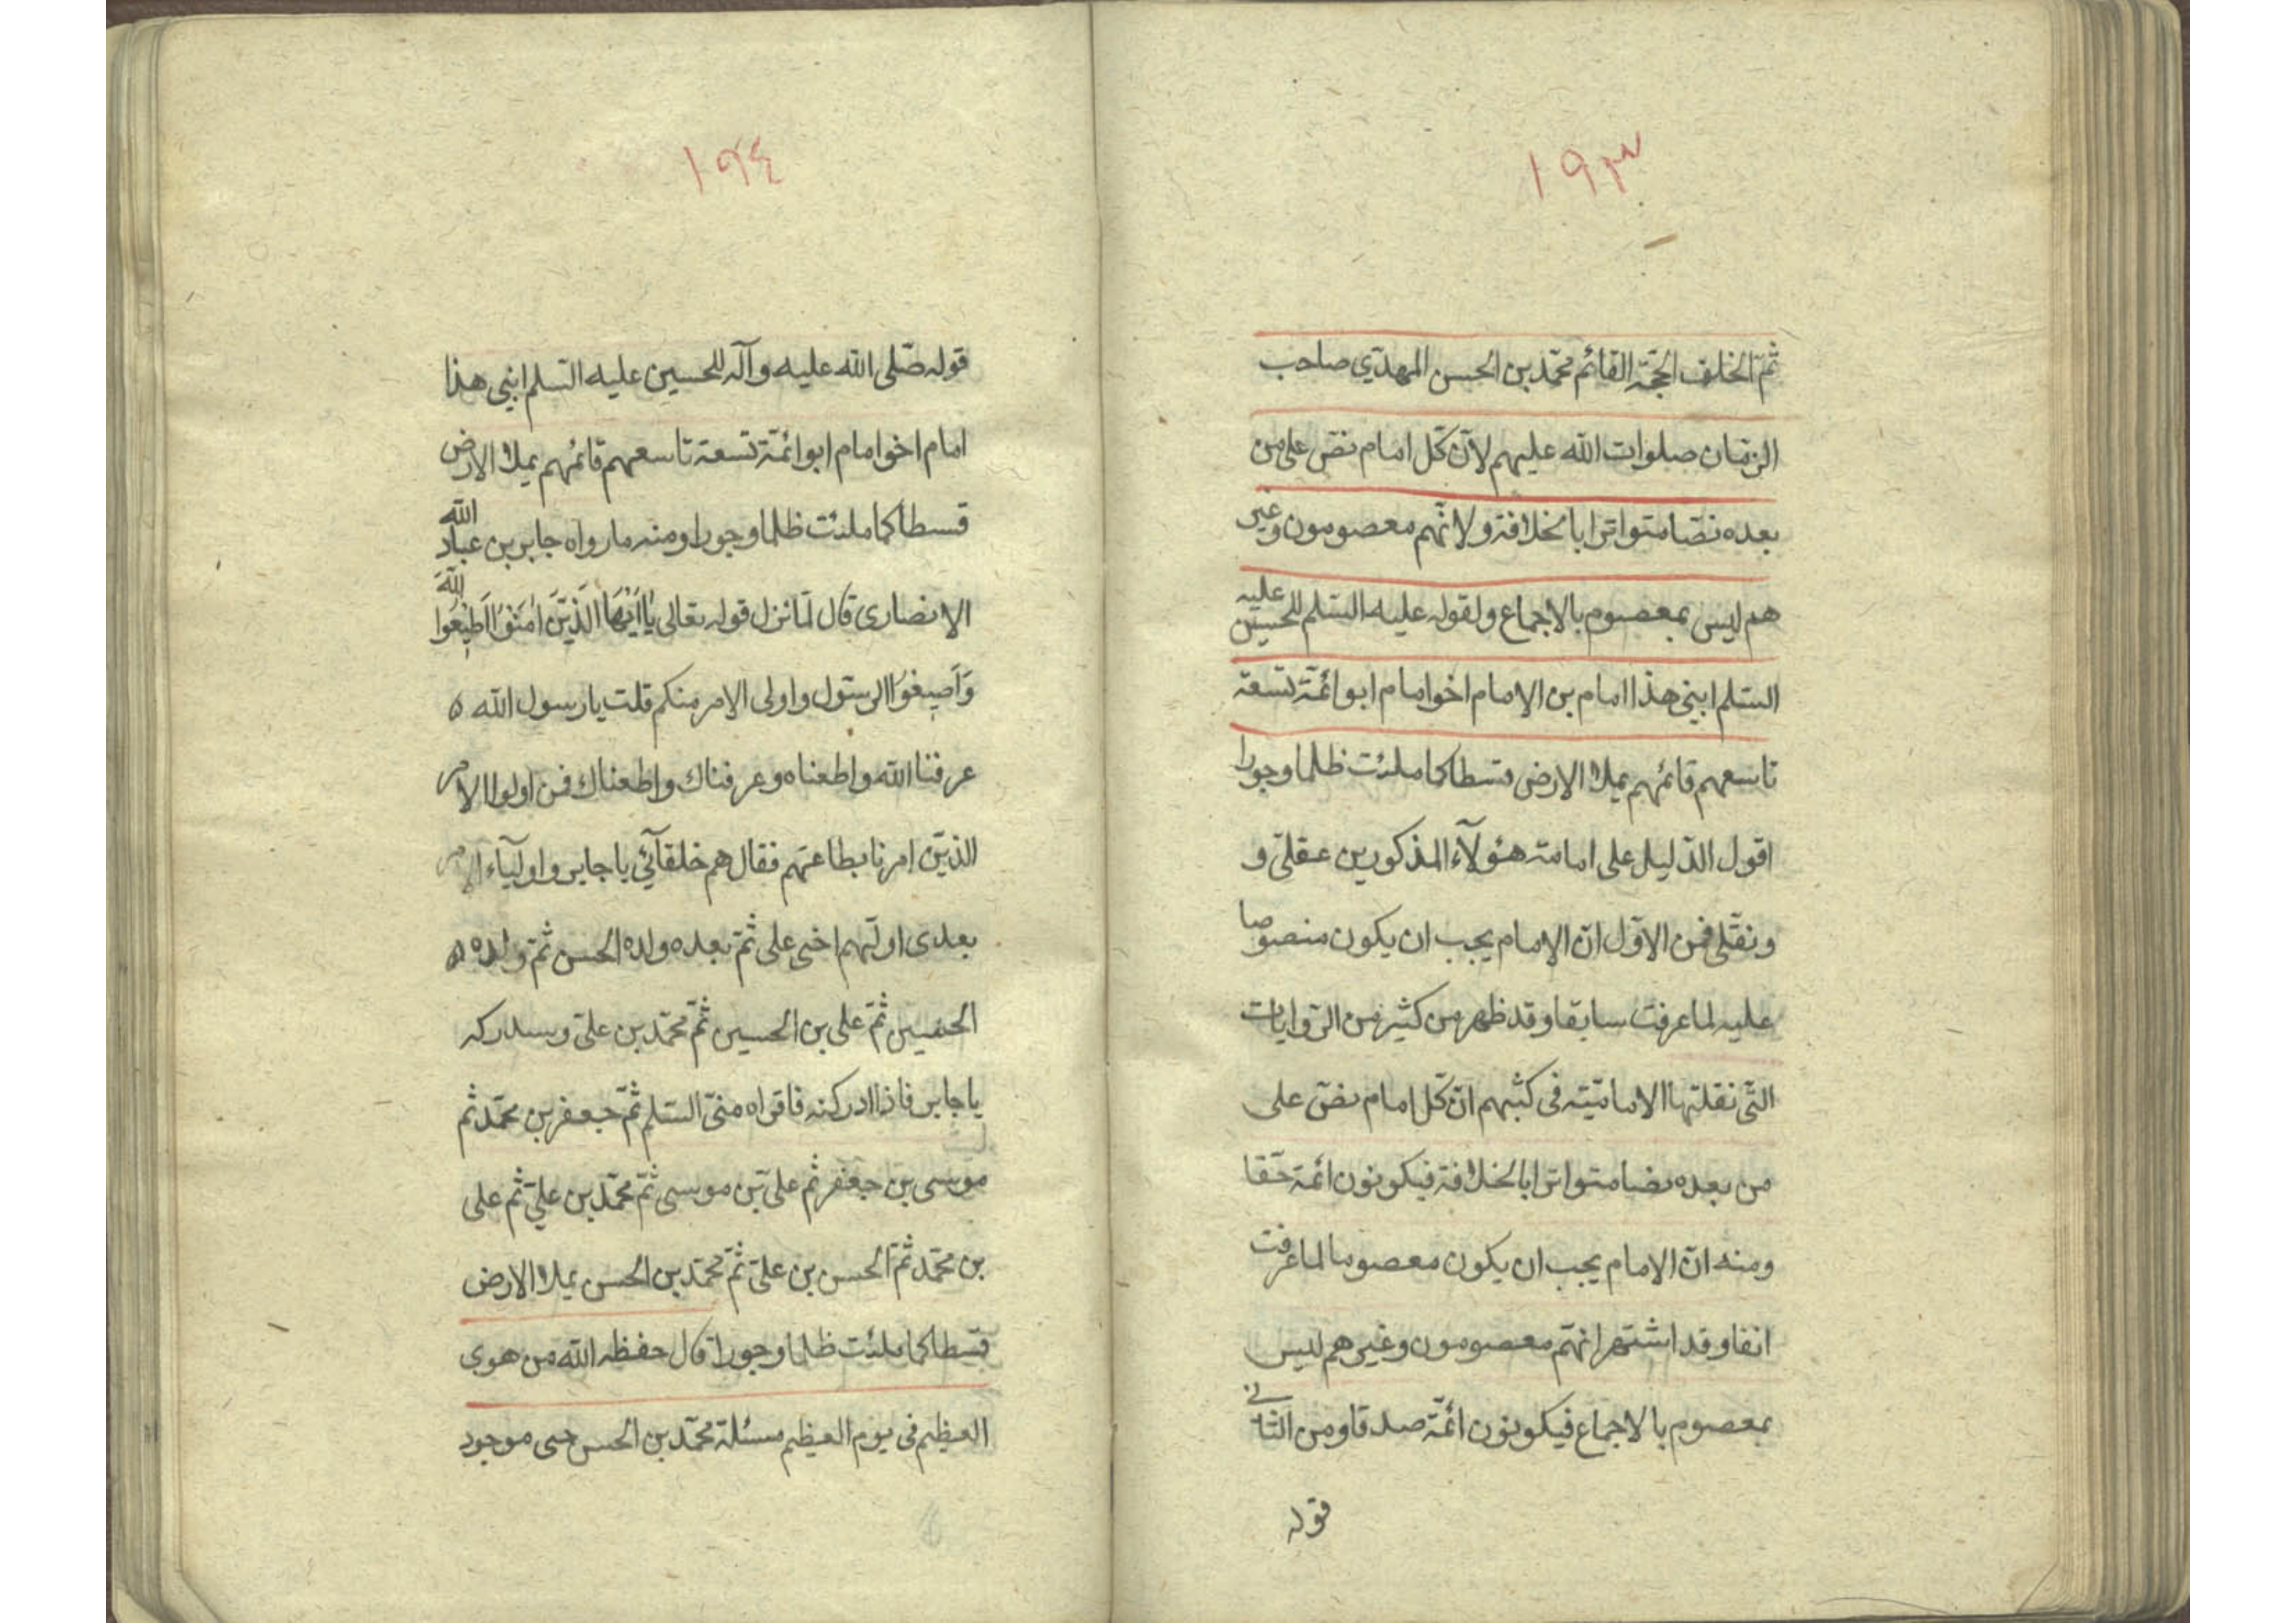 ١٩٣
ثمّ الخلف الحجّة القائم محمّد بن الحسن المهدّي صاحب
الزمّان صلوات الله عليهم لانّ كّل امام نصّ على من
بعده نصّا متواترا بالخلافة ولانّهم معصومون وغير
هم ليس بمعصوم بالاجماع ولقوله عليه السّلم للحسين عليه
السّلم ابني هذا امام بن الامام اخوا مام ابو ائمّة تسعة
تاسعهم قائمهم يملاء الارض قسطا كما ملئت ظلما وجورا
اقول الدّليل على امامة هؤلآء المذكورين عقلىّ و
ونقلّى فمن الاوّل انّ الامام يجب ان يكون منصوصا
عليه لما عرفت سابقا وقد ظهر من كثير من الرّوايات
التّى نقلتها الاماميّة فى كتبهم انّ كّل امام نصّ على
من بعده نصّا متواترا بالخلافة فيكونون ائمّة حقّا
ومنه انّ الامام يجب ان يكون معصوما لما عرفت
انفا وقد اشتهر انهّم معصومون وغيرهم ليس
بمعصوم بالاجماع فيكونون ائمّة صدقا ومن الثانى
قوله
١٩٤
قوله صّلى الله عليه وآله للحسين عليه السّلم ابنى هذا
امام اخوا مام ابو ائمّة تسعة تاسعهم قائمهم يملاء الارض
قسطا كما ملئت ظلما وجورا ومنه ما رواه جابر بن عبد الله
الانصارى قال لمّا نزل قوله تعالى يٰا اَيُّهَا الَّذيّنَ اٰمَنُوْا اَطيْعُوا اللّهَ
وَاَطيعُوا الرسّول واولى الامر منكم قلت يا رسول الله ه
عرفنا الله واطعناه وعرفناك واطعناك فمن اولوا الامر
الذيّن امرنا بطاعتهم فقال هم خلفآئي يا جابر واوليآء الامر
بعدى اولّهم اخى على ثمّ بعده ولده الحسن ثمّ ولده ه
الحسين ثمّ على بن الحسين ثمّ محمّد بن علىّ وستدركه
يا جابر فاذا ادركته فاقراه منىّ السّلم ثمّ جعفر بن محمّد ثم
موسى بن جعفر ثم علىّ بن موسى ثمّ محمّد بن علىّ ثم على
بن محمّد ثمّ الحسن بن علىّ ثمّ محمّد بن الحسن يملاء الارض
قسطا كما ملئت ظلما وجورا قال حفظه الله من هوى
العظيم فى يوم العظيم مسئلة محمّد بن الحسن حى موجود